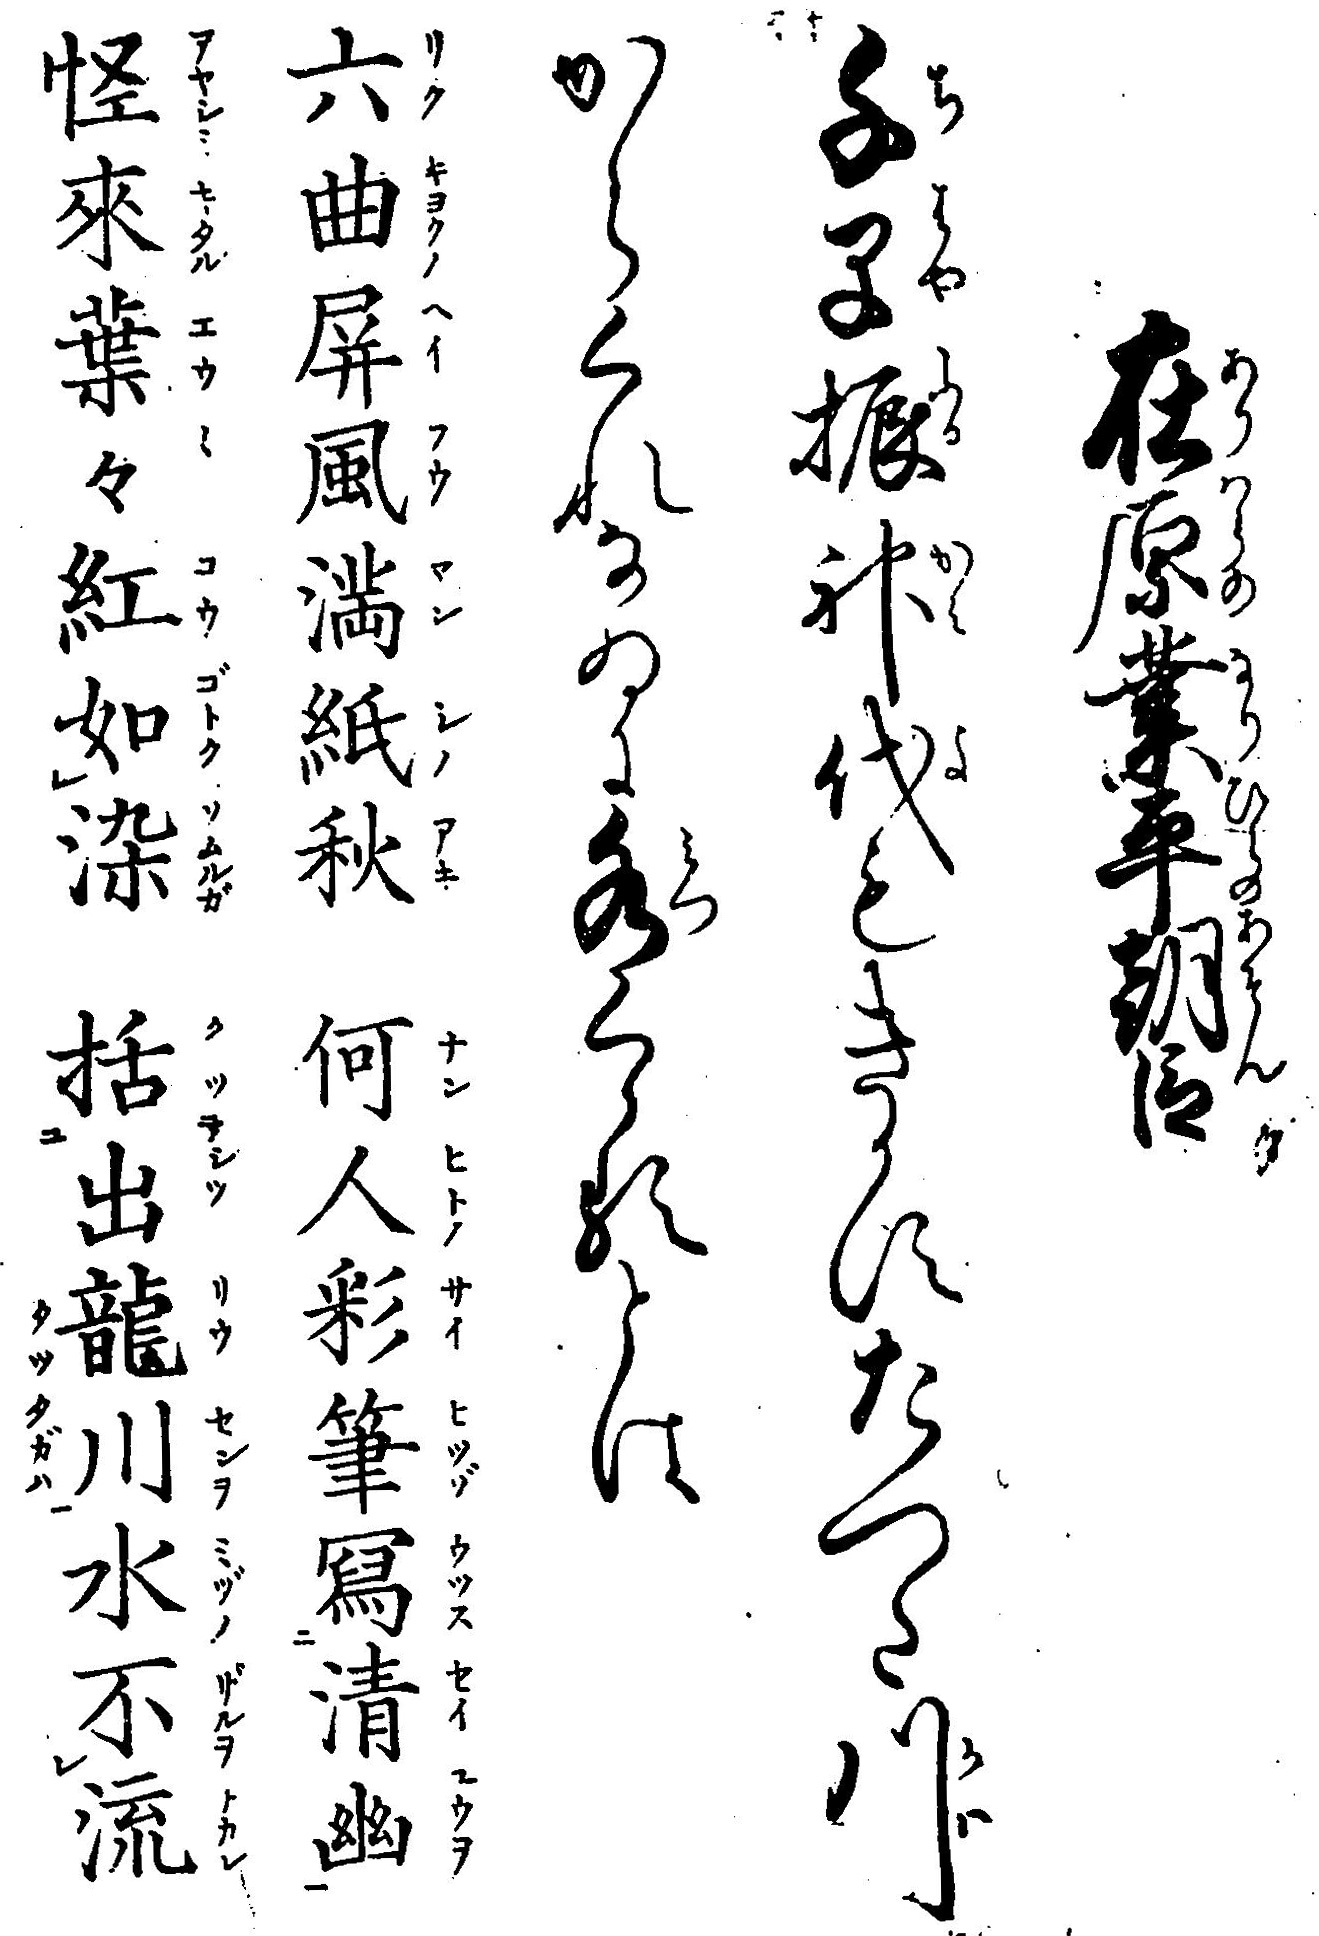 在原業平朝臣
千早振神代もきかすたつた川
からくれなゐに水くゝるとは
六曲屏風満紙秋 何人彩筆寫清幽
怪來葉々紅如染 括出龍川水不流